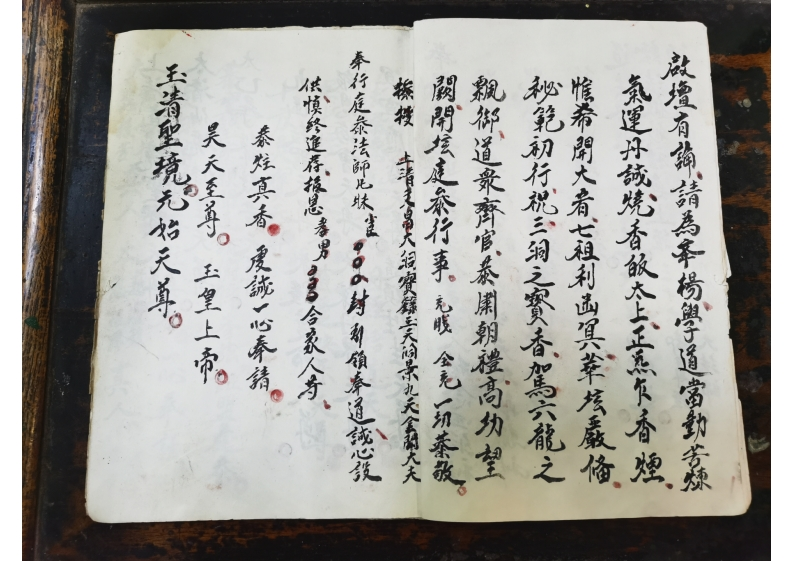 啟壇有諭請為奉楊學道當勤苦煉
氣運丹誠燒香皈太上正炁乍香煙
惟希開大宥七祖利幽冥華坛嚴脩
秘範初行祝三洞之寶香加馬六龍之
飄御道眾齊官恭肅朝禮高功望
闕開坛庭參行事 全充一切恭敬
上清文昌大洞寶籙玉天洞景九天金闕大夫
奉行庭參法師 封引領奉道誠心設
供慎終進荐報恩孝男 合家人等
恭炷真香虔誠一心奉請
昊天至尊 玉皇上帝
玉清聖境元始天尊